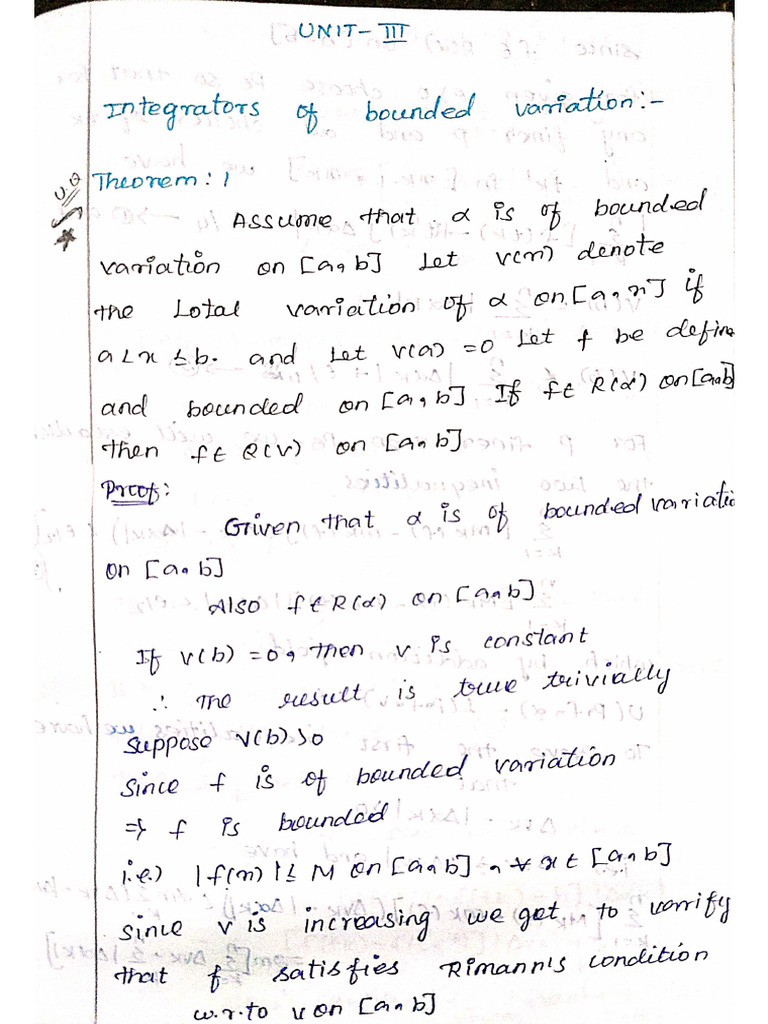 UNIT-III
Integrators of bounded variation:-
U.Q
Theorem: 1
Assume that α is of bounded
variation on [a, b] Let v(x) denote
the Lotal variation of α on [a, x] if
a < x ≤ b. and Let v(a) = 0 Let f be define
and bounded on [a, b] If f ∈ R(α) on [a,b]
then f ∈ R(v) on [a, b]
Proof:
Given that α is of bounded variatio
on [a, b]
Also f ∈ R(α) on [a, b]
If v(b) = 0, then v is constant
∴ The result is true trivially
Suppose v(b) > 0
Since f is of bounded variation
⇒ f is bounded
i.e.) |f(x)| ≤ M on [a, b], ∀ x ∈ [a, b]
Since v is increasing we get to varrify
that f satisfies Rimann's condition
w.r.to v on [a, b]